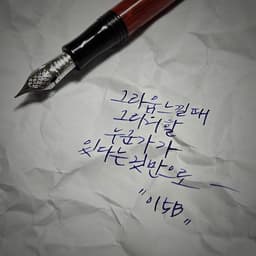 그리움 느낄때
그리워할
누군가가
있다는 것만으로 –
"015B"